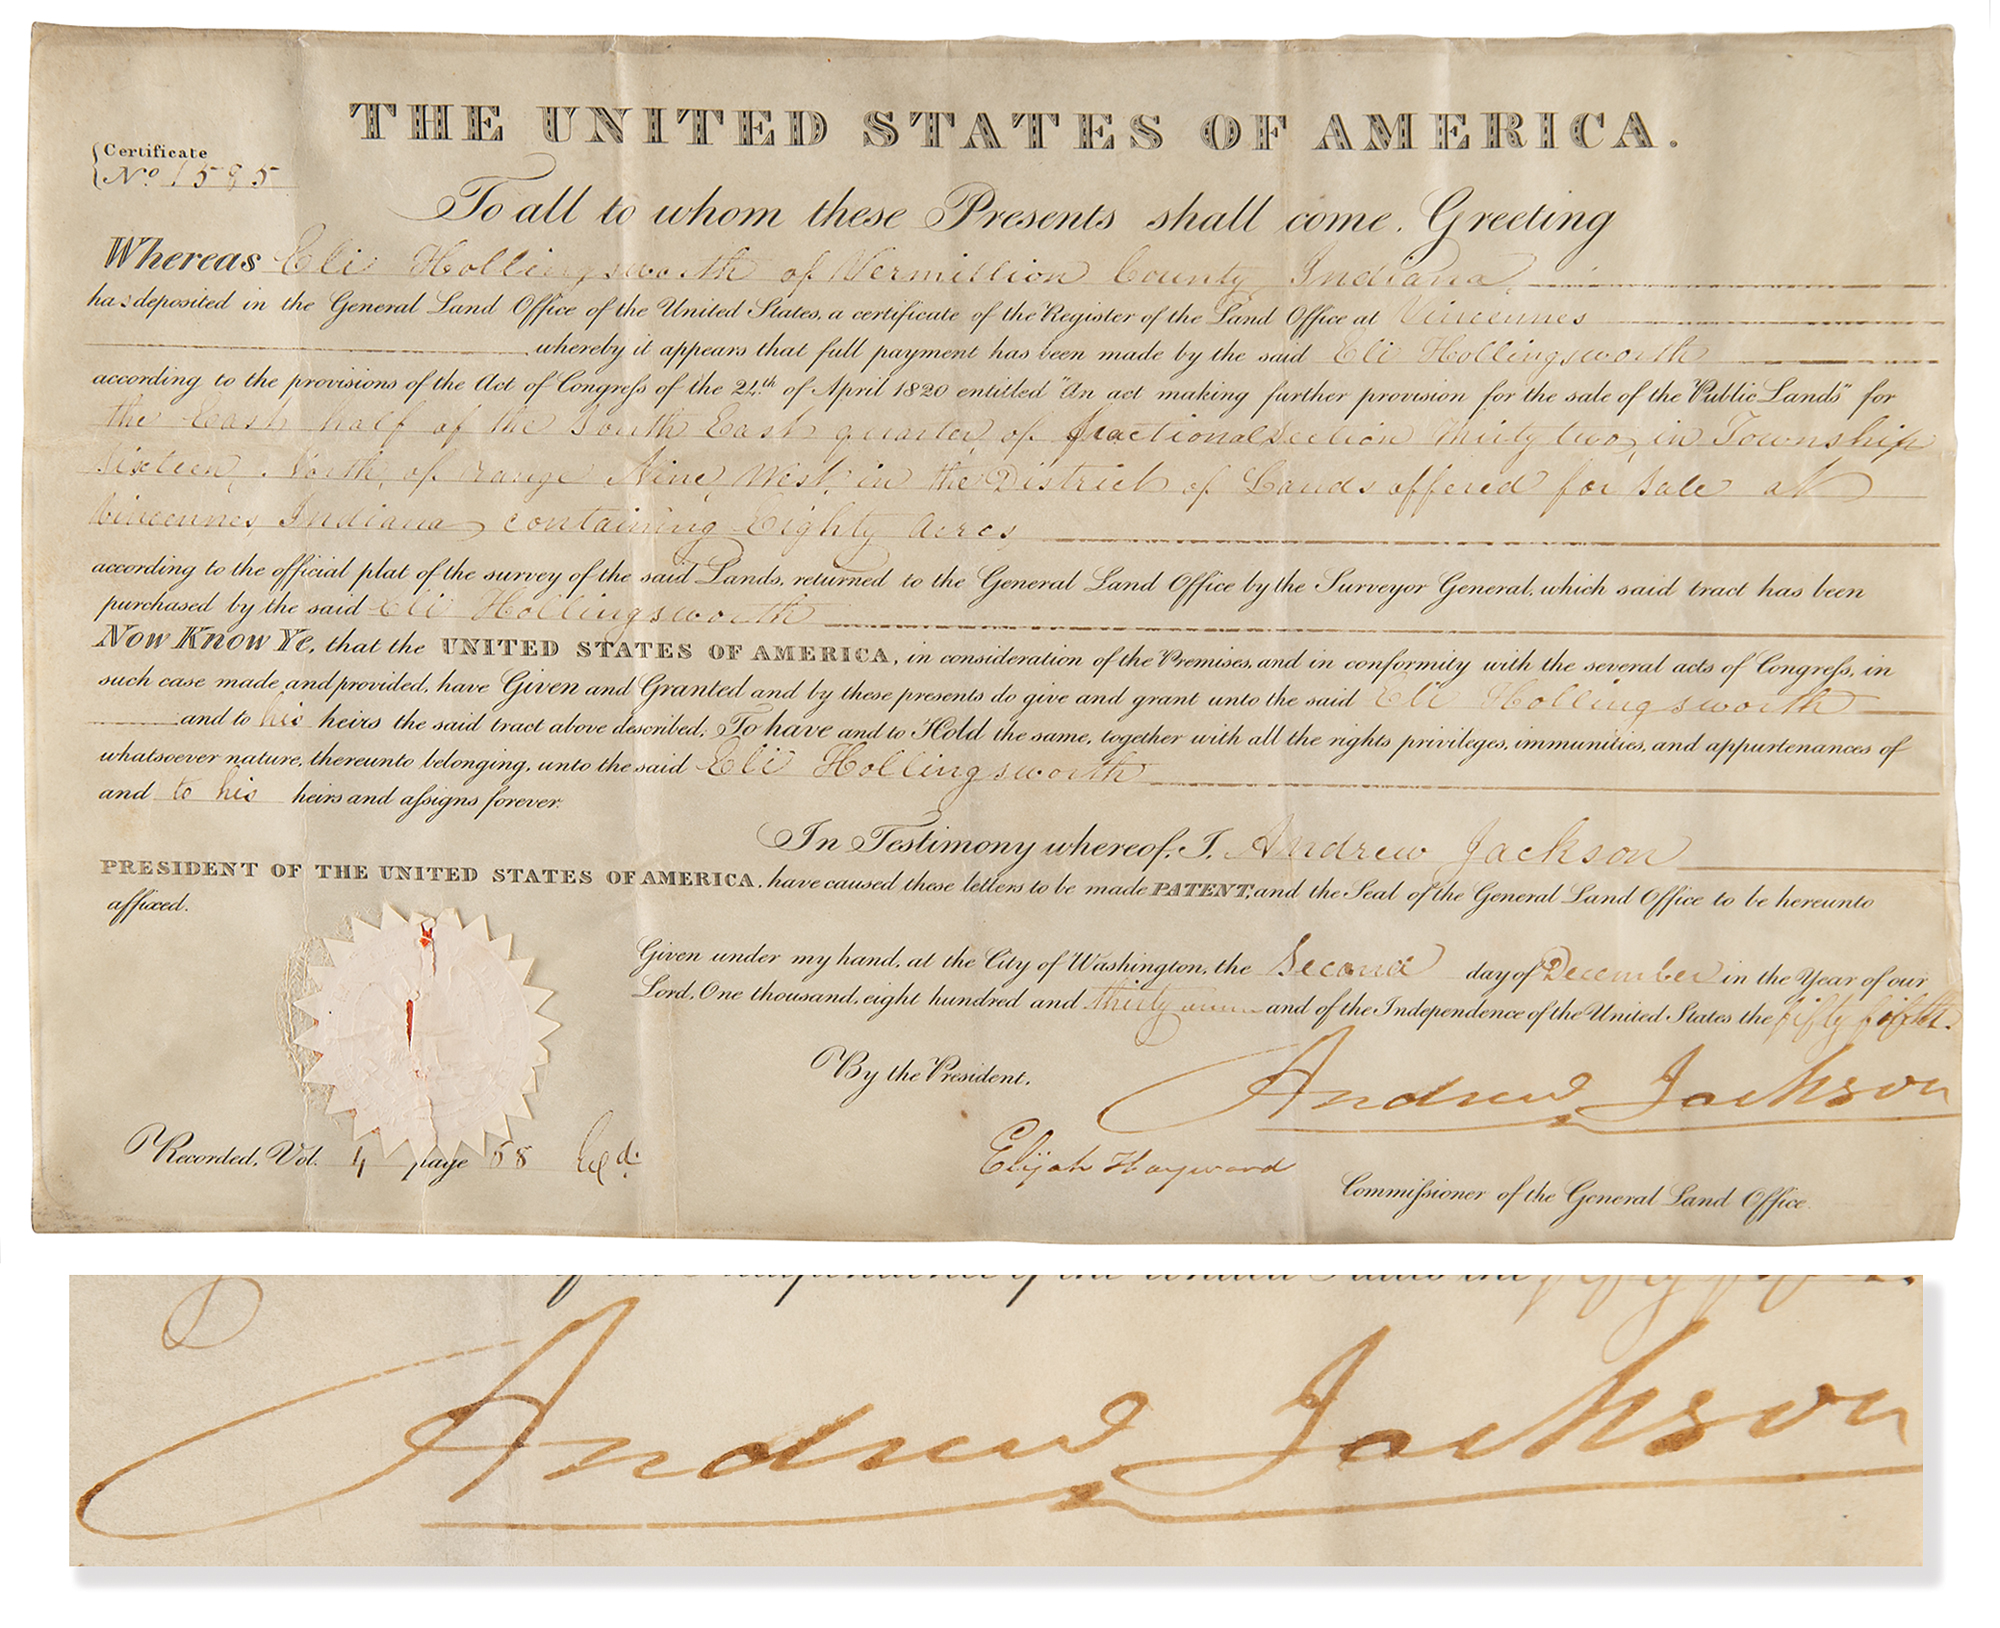 THE UNITED STATES OF AMERICA.
Certificate
No. 1585
To all to whom these Presents shall come, Greeting
Whereas Eli Hollingsworth of Vermillion County, Indiana,
has deposited in the General Land Office of the United States, a certificate of the Register of the Land Office at Vincennes
whereby it appears that full payment has been made by the said Eli Hollingsworth
according to the provisions of the Act of Congress of the 24th of April 1820 entitled "An act making further provision for the sale of the Public Lands" for
the East half of the South East quarter, of fractional Section thirty two, in Township
Sixteen, North, of range Nine, West, in the District of Lands offered for Sale at
Vincennes, Indiana, containing Eighty acres,
according to the official plat of the survey of the said Lands, returned to the General Land Office by the Surveyor General, which said tract has been
purchased by the said Eli Hollingsworth
Now Know Ye, that the UNITED STATES OF AMERICA, in consideration of the Premises, and in conformity with the several acts of Congress, in
such case made and provided, have Given and Granted and by these presents do give and grant unto the said Eli Hollingsworth
and to his heirs the said tract above described; To have and to Hold the same, together with all the rights privileges, immunities, and appurtenances of
whatsoever nature, thereunto belonging, unto the said Eli Hollingsworth
and to his heirs and assigns forever.
In Testimony whereof, I, Andrew Jackson
PRESIDENT OF THE UNITED STATES OF AMERICA, have caused these letters to be made PATENT, and the Seal of the General Land Office to be hereunto
affixed.
Given under my hand, at the City of Washington, the Second day of December in the Year of our
Lord, One thousand, eight hundred and thirty and of the Independence of the United States the fifty fifth.
By the President,
Andrew Jackson
Elijah Hayward
Commissioner of the General Land Office.
Recorded, Vol. 4 page 58
Andrew Jackson